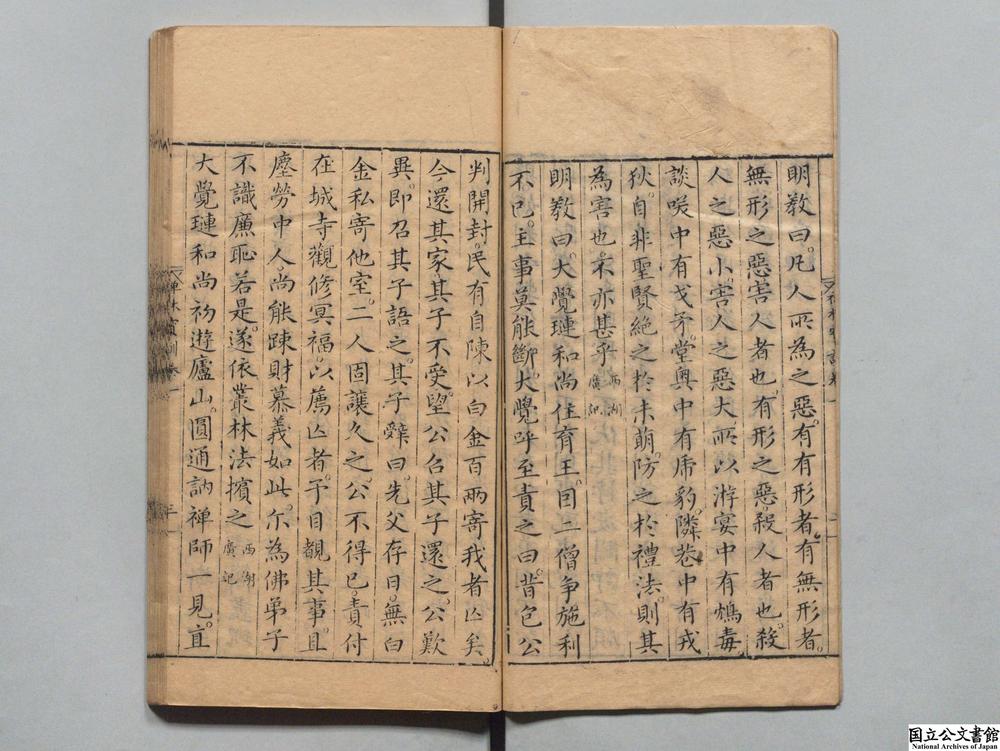 明教曰。凡人所為之惡。有有形者。有無形者。
無形之惡害人者也。有形之惡殺人者也。殺
人之惡小。害人之惡大。所以游宴中有鴆毒
談咲中有戈矛。堂奥中有虎豹。隣巷中有戎
狄。自非聖賢絶之於未萌。防之於禮法。則其
為害也。不亦甚乎 西湖廣記
明教曰。大覺璉和尚住育王。因二僧争施利
不已。主事莫能斷。大覺呼至責之曰。昔包公
判開封。民有自陳以白金百兩寄我者亡矣。
今還其家。其子不受。望公召其子還之。公歎
異。即召其子語之。其子辭曰。先父存日。無白
金私寄他室。二人固讓久之。公不得已。責付
在城寺觀修冥福。以薦亡者。予目覩其事。且
塵勞中人。尚能踈財慕義如此。尓為佛弟子
不識廉恥若是。遂依叢林法擯之 西湖廣記
大覺璉和尚初遊廬山。圓通訥禅師一見。直
国立公文書館
National Archives of Japan